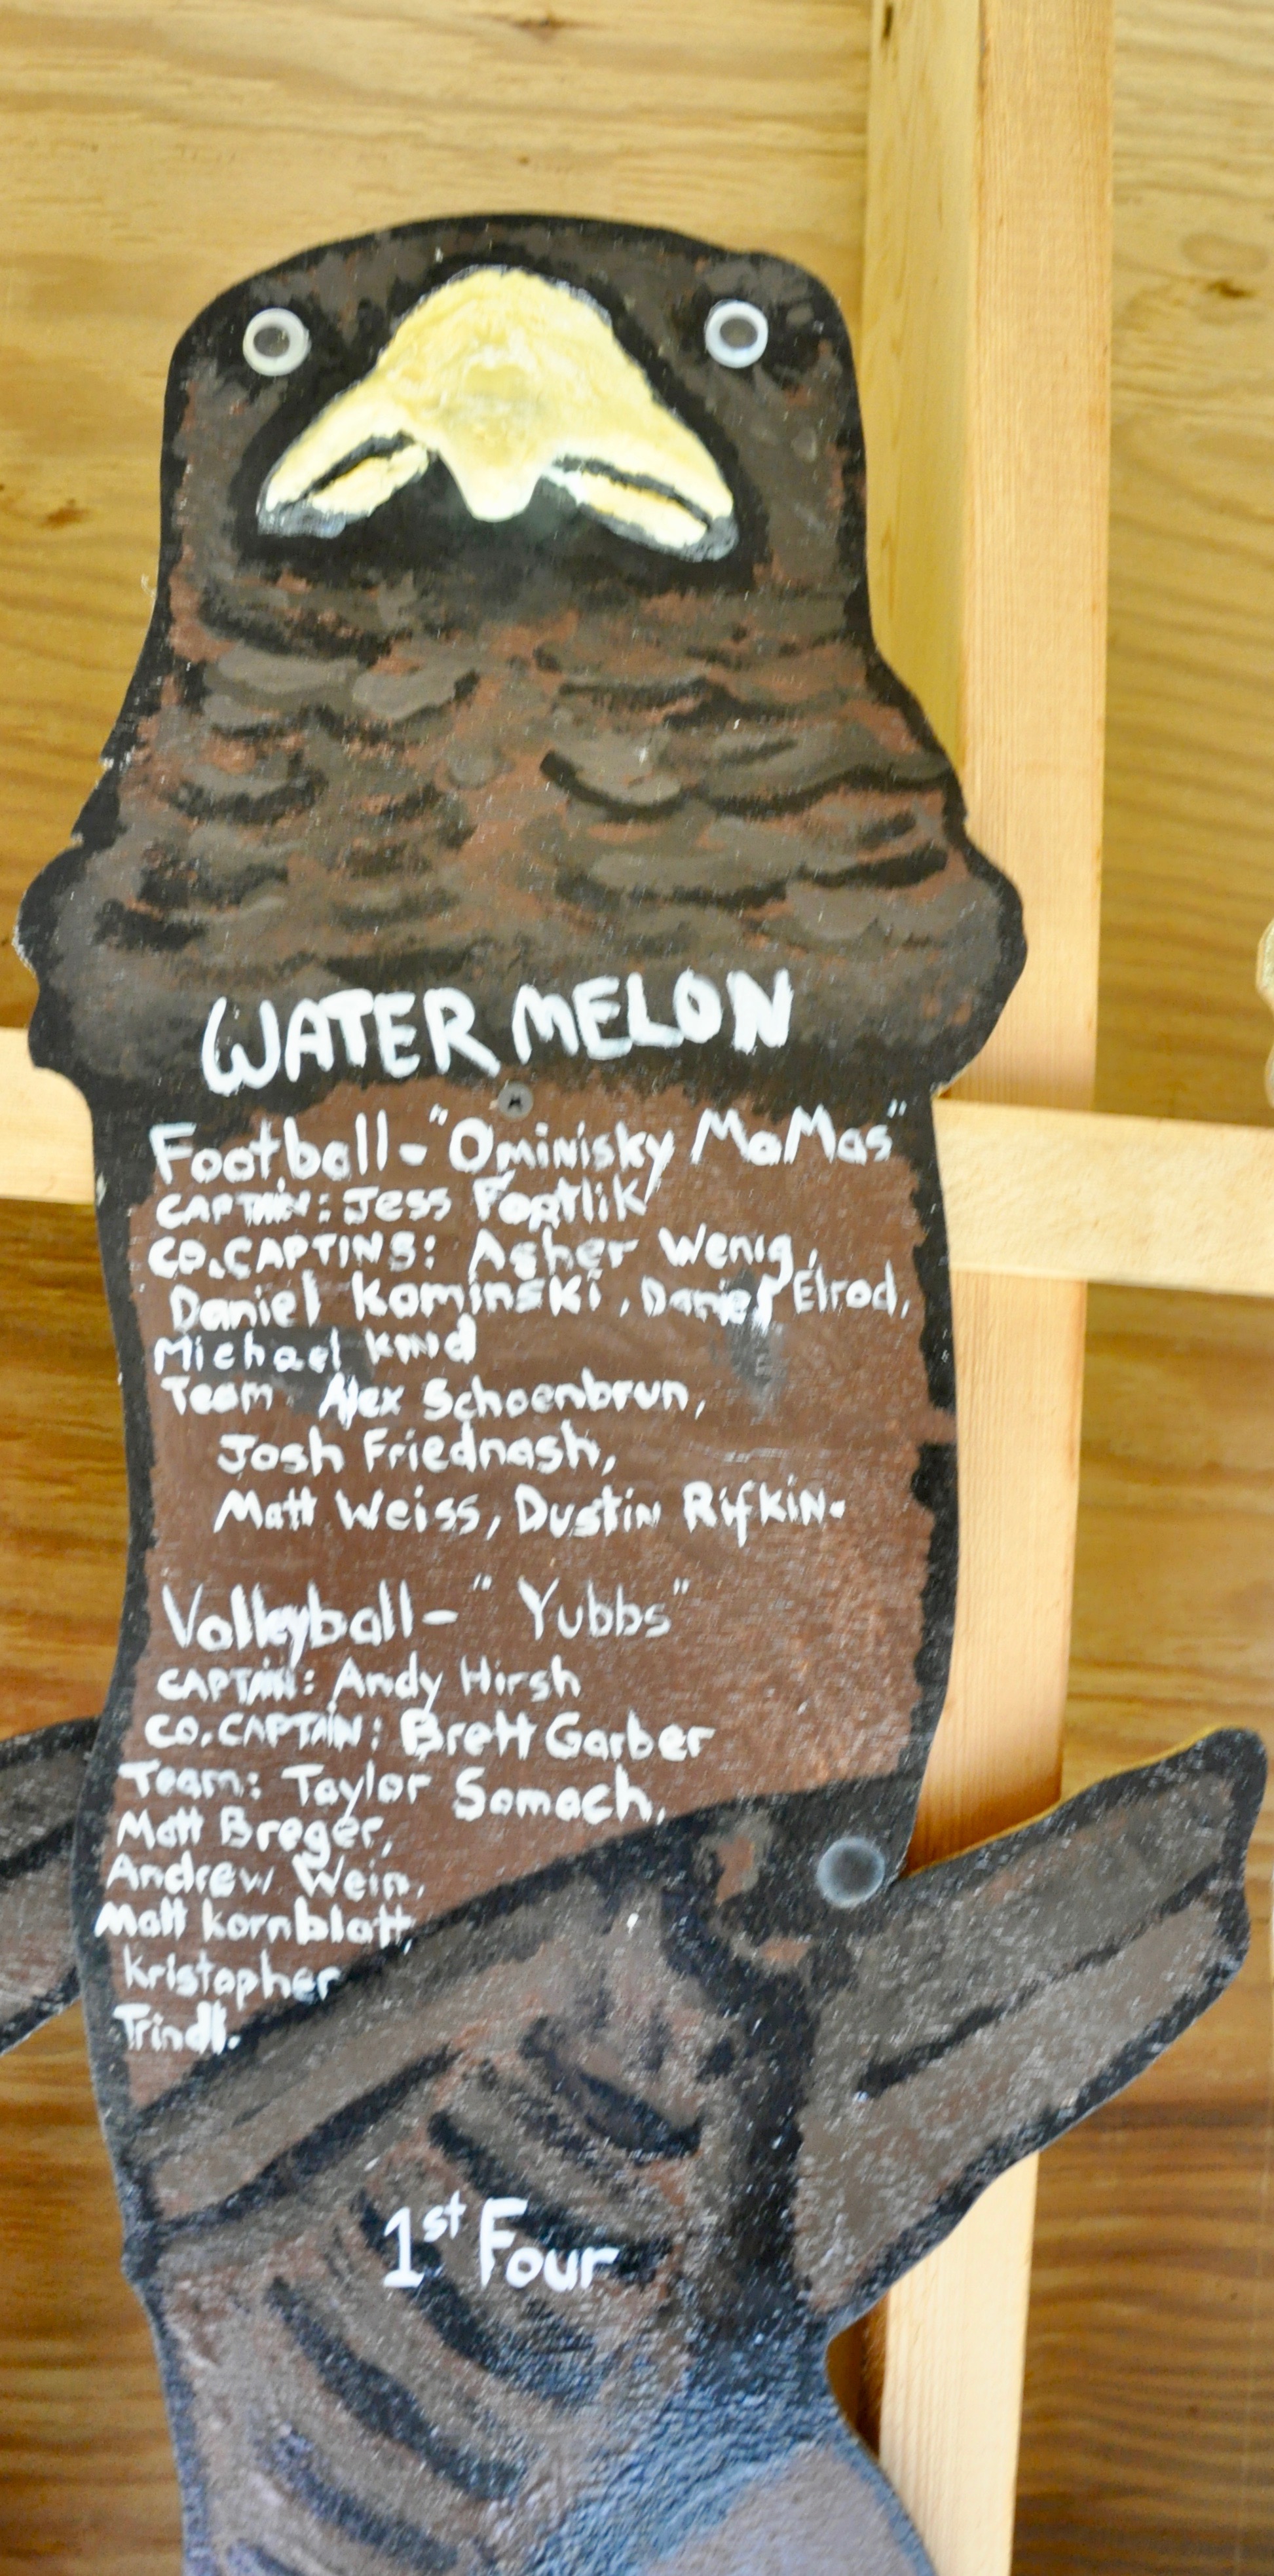 WATER MELON
Football - "Ominisky MaMas"
CAPTAIN: Jess Foptlik
CO.CAPTINS: Asher Wenig,
Daniel Kaminski, Daniel Elrod,
Michael kind
Team Alex Schoenbrun,
Josh Friednash,
Matt Weiss, Dustin Rifkin.
Volleyball - "Yubbs"
CAPTAIN: Andy Hirsh
CO.CAPTAIN: Brett Garber
Team: Taylor Somach,
Matt Breger,
Andrew Wein,
Matt kornblatt,
kristopher
Trindl.
1st Four